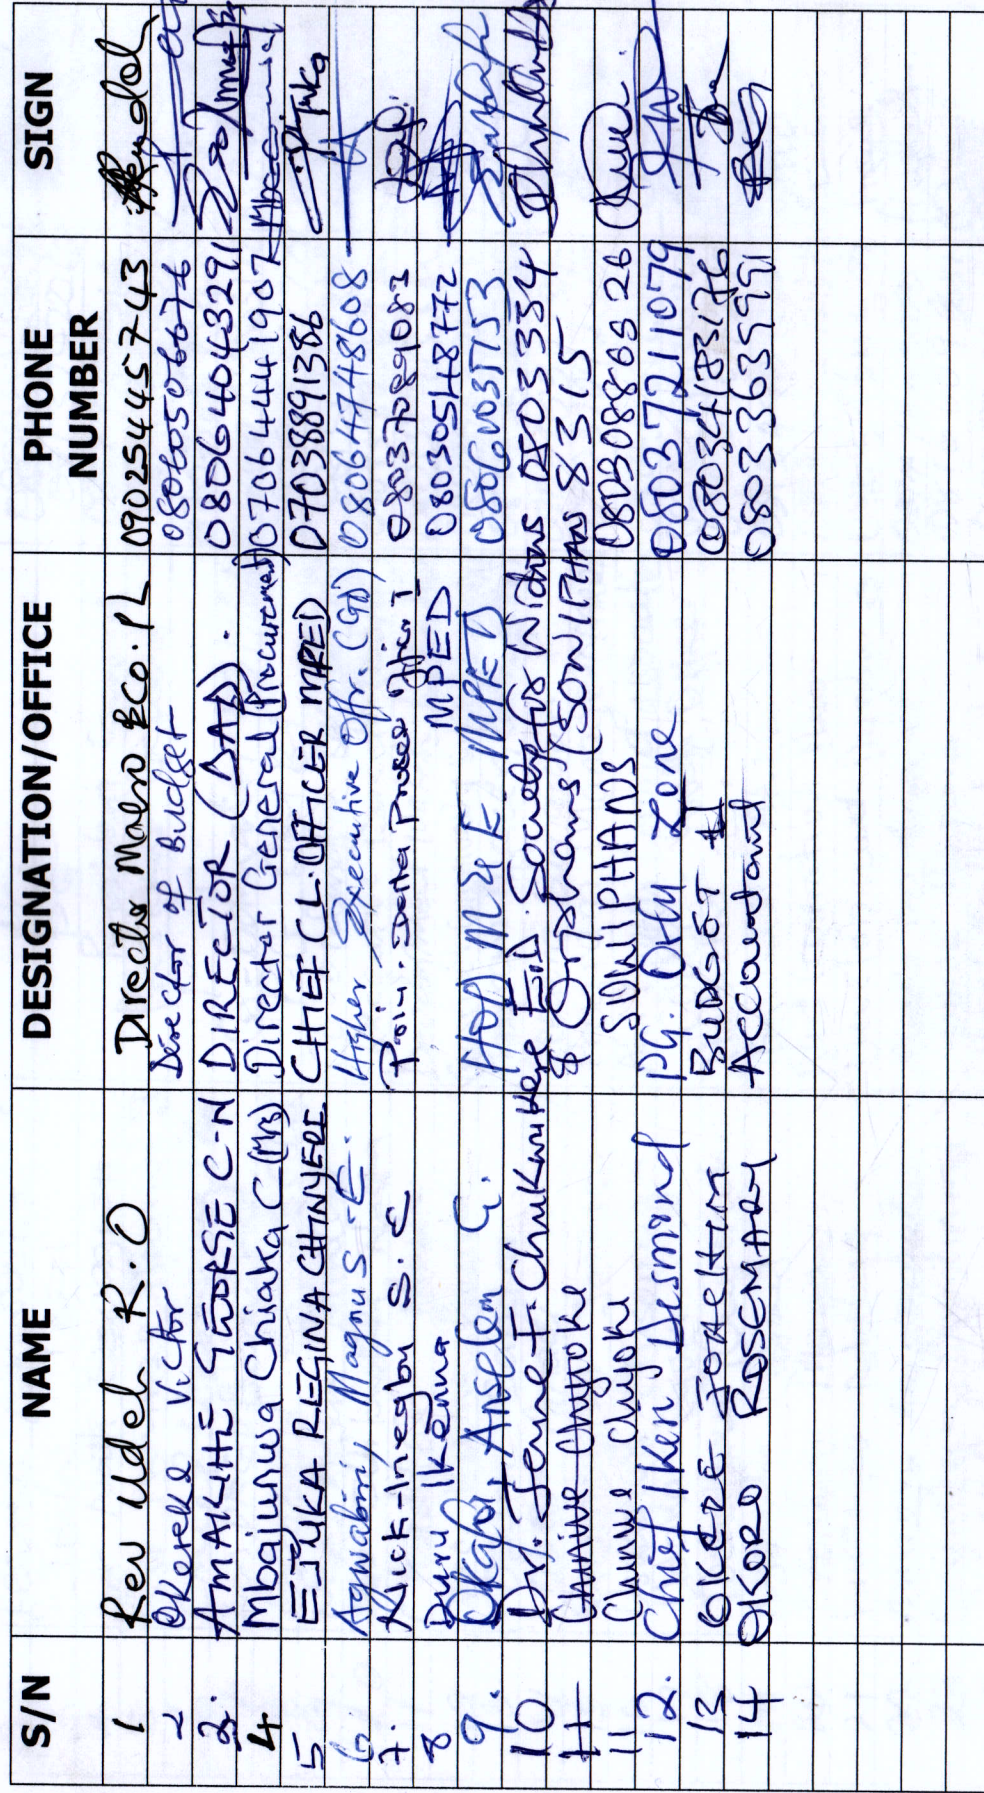 S/N NAME DESIGNATION/OFFICE PHONE NUMBER SIGN
1 Rev Udeh R. O Director Macro Eco. PL 09025445743
2 Okereke Victor Director of Budget 08060506676
3. AMAKIHE GEORSE C-N DIRECTOR (DAD). 08064043291
4 Mbajunwa Chiaka C (Mrs) Director General (Procurement) 07066441907
5 EJIUKA REGINA CHINYERE CHIEF CL. OFFICER MPED 07038891386
6 Agwabini, Magnus E. Higher Executive Offr. (GD) 08064748608
7. Nick-Inegbu S. C 08037089083
8 Duru Ikenna MPED 08030548772
9. Okafor Anselem C. HOD M&E MPED
10 Dr. Jeme F. Chukwukere E.D. Society for Widows 0803334
11 Chinwe Chijioke & Orphans (SOWIPHANS 8315
11 Chinwe Chijioke SOWIPHANS 08030886326
12. Chief Iken Desmond PG. Orlu Zone 08037211079
13 OKERE JOACHIM BUDGET II
14 OKORO ROSEMARY Accountant